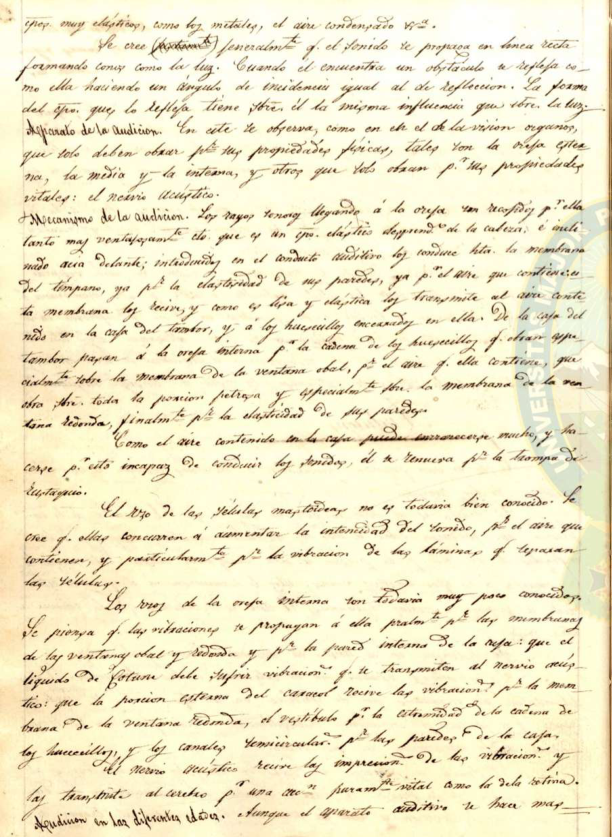 cpos. muy elasticos, como los metales, el aire condensado &.ª
Se cree generalmte. q. el sonido se propaga en linea recta
formando conos como la luz. Cuando el encuentra un obstáculo se refleja co-
mo ella haciendo un ángulo de incidencia igual al de refleccion. La forma
del cpo. que lo refleja tiene sbre. él la misma influencia que sbre. la luz.
Aparato de la audicion. En este se observa, como en el de la vision organos,
que solo deben obrar pr. sus propiedades fisicas, tales son la oreja ester-
na, la media y la interna, y otros que solo obran pr. sus propiedades
vitales: el nervio acústico.
Mecanismo de la audicion. Los rayos sonoros llegando á la oreja son recojidos pr. ella
tanto mas ventajosamte. cto. que es un cpo. elastico desprendo. de la cabeza, é incli-
nado acia delante; introducidos en el conducto auditivo los conduce hta. la membrana
del timpano, ya pr. la elasticidad de sus paredes, ya pr. el aire que contiene: es-
ta membrana los recive, y como es lisa y elastica los transmite al aire conte-
nido en la caja del tambor, y á los huesecillos encerrados en ella. De la caja del
tambor pasan á la oreja interna pr. la cadena de los huesecillos q. obran espe-
cialmte. sobre la membrana de la ventana obal, pr. el aire q. ella contiene, que
obra sbre. toda la porcion petrosa y especialmte. sbre. la membrana de la ven-
tana redonda, finalmte. pr. la elasticidad de sus paredes.
Como el aire contenido en la caja puede enrarecerse mucho, y ha-
cerse pr. esto incapaz de conducir los sonidos, él se renueva pr. la trompa de
Eustaquio.
El uzo de las sélulas mastoideas no es todavia bien conocido. Se
cree q. ellas concurren á aumentar la intencidad del sonido, pr. el aire que
contienen, y particularmte. pr. la vibracion de las láminas q. separan
las sélulas.
Los uzos de la oreja interna son todavia muy poco conocidos.
Se piensa q. las vibraciones se propagan á ella pralmte. pr. las membranas
de las ventanas obal y redonda y pr. la pared interna de la caja: que el
liquido de Cotune debe sufrir vibracions. q. se transmiten al nervio acus-
tico: que la porcion esterna del caracol recive las vibracions. pr. la mem-
brana de la ventana redonda, el vestíbulo pr. la estremidad de la cadena de
los huecesillos, y los canales semicirculars. pr. las pareds. de la caja.
El nervio acústico recive las impresions. de las vibracions. y
las transmite al cerebro pr. una accn. puramte. vital como la de la retina.
Audicion en las diferentes edades. Aunque el aparato auditivo se hace mas
UNIVERSITA